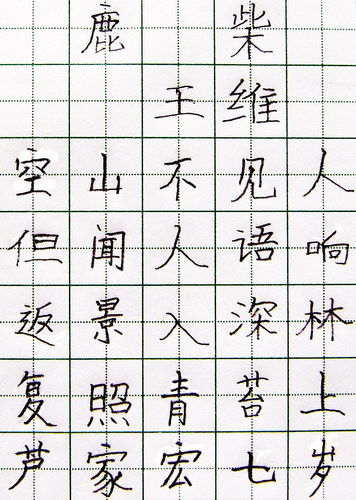 鹿柴
王维
空山不见人
但闻人语响
返景入深林
复照青苔上
芦家宏七岁